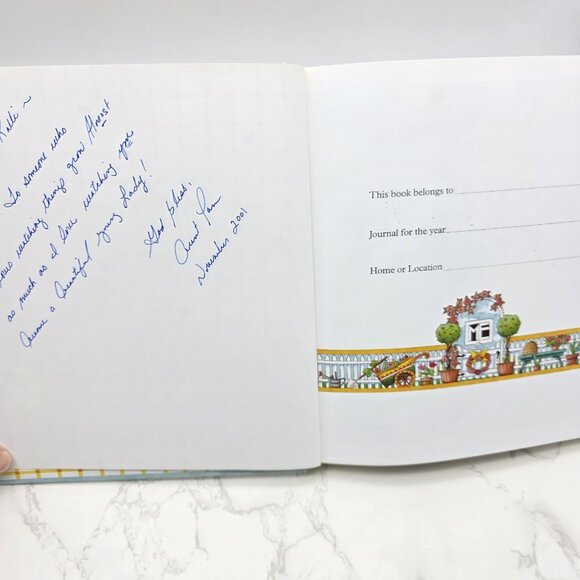 Kalli ~
To someone who
loves watching things grow Almost
as much as I love watching you
become a beautiful young Lady!
God bless,
Aunt Pam
November 2001
This book belongs to
Journal for the year
Home or Location
ME